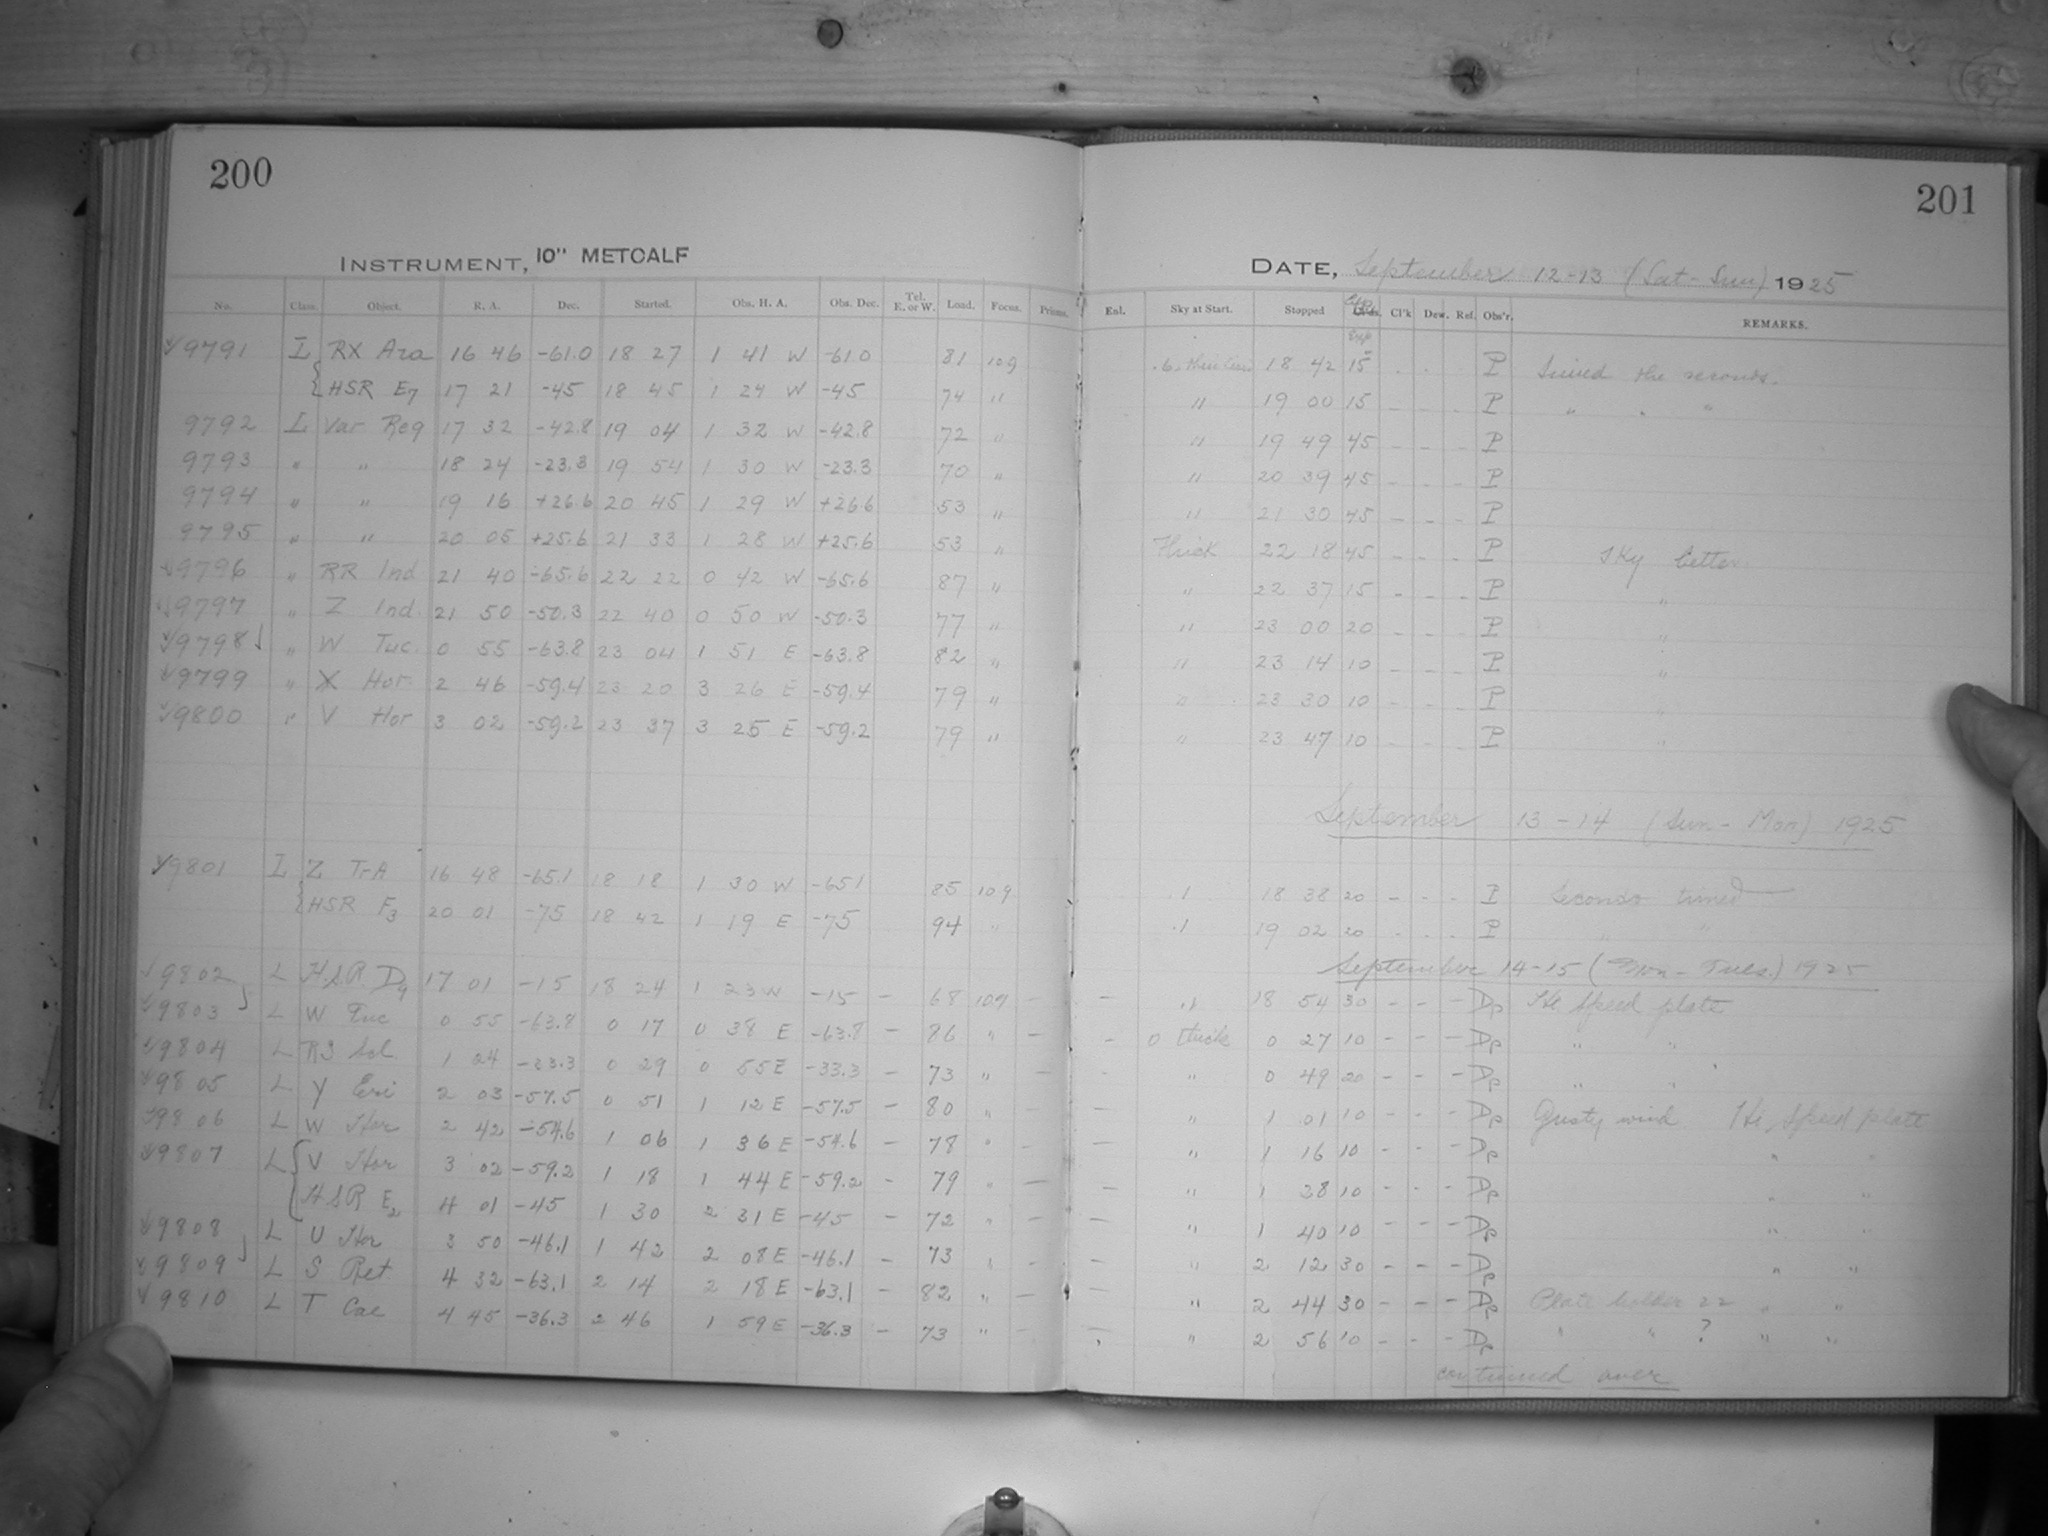 200
INSTRUMENT, 10" METCALF
No. Class. Object. R. A. Dec. Started. Obs. H. A. Obs. Dec. Tel. E. or W. Load. Focus. Prisms.
9791 L RX Ara 16 46 -61.0 18 27 1 41 W -61.0 81 109
HSR E7 17 21 -45 18 45 1 24 W -45 74 "
9792 L Var Reg 17 32 -42.8 19 04 1 32 W -42.8 72 "
9793 " " 18 24 -23.3 19 54 1 30 W -23.3 70 "
9794 " " 19 16 +26.6 20 45 1 29 W +26.6 53 "
9795 " " 20 05 +25.6 21 33 1 28 W +25.6 53 "
9796 " RR Ind 21 40 -65.6 22 22 0 42 W -65.6 87 "
9797 " Z Ind. 21 50 -50.3 22 40 0 50 W -50.3 77 "
9798 " W Tuc. 0 55 -63.8 23 04 1 51 E -63.8 82 "
9799 " X Hor. 2 46 -59.4 23 20 3 26 E -59.4 79 "
9800 " V Hor 3 02 -59.2 23 37 3 25 E -59.2 79 "
9801 L Z TrA 16 48 -65.1 18 18 1 30 W -65.1 85 109
HSR F3 20 01 -75 18 42 1 19 E -75 94 "
9802 L H.S.R. D9 17 01 -15 18 24 1 23 W -15 - 68 109 -
9803 L W Tuc 0 55 -63.8 0 17 0 38 E -63.8 - 86 " -
9804 L RS Scl. 1 24 -33.3 0 29 0 55 E -33.3 - 73 " -
9805 L Y Eri 2 03 -57.5 0 51 1 12 E -57.5 - 80 " -
9806 L W Hor 2 42 -54.6 1 06 1 36 E -54.6 - 78 " -
9807 L V Hor 3 02 -59.2 1 18 1 44 E -59.2 - 79 " -
H.S.R E2 4 01 -45 1 30 2 31 E -45 - 72 " -
9808 L U Hor 3 50 -46.1 1 42 2 08 E -46.1 - 73 " -
9809 L S Ret 4 32 -63.1 2 14 2 18 E -63.1 - 82 " -
9810 L T Cae 4 45 -36.3 2 46 1 59 E -36.3 - 73 " -
201
DATE, September 12-13 (Sat-Sun) 1925
Enl. Sky at Start. Stopped Exp. Cl'k Dew. Ref. Obs'r. REMARKS.
18 42 15 P the seconds.
" 19 00 15 - - - P " " "
" 19 49 45 - - - P
" 20 39 45 - - - P
" 21 30 45 - - - P
Thick 22 18 45 - - - P Sky better
" 22 37 15 - - - P "
" 23 00 20 - - - P "
" 23 14 10 - - - P "
" 23 30 10 - - - P "
" 23 47 10 - - - P "
September 13-14 (Sun-Mon) 1925
.1 18 38 20 - - - P Seconds timed
.1 19 02 20 - - - P " "
September 14-15 (Mon-Tues.) 1925
- " 18 54 30 - - - Hi Speed plate
- 0 thick 0 27 10 - - - " "
" 0 49 20 - - - " "
- " 1 01 10 - - - Gusty wind. Hi Speed plate
- " 1 16 10 - - - " "
- " 1 28 10 - - - " "
- " 1 40 10 - - - " "
- " 2 12 30 - - - " "
- " 2 44 30 - - - Plate holder 22 " "
" 2 56 10 - - - " " ? " "
continued over